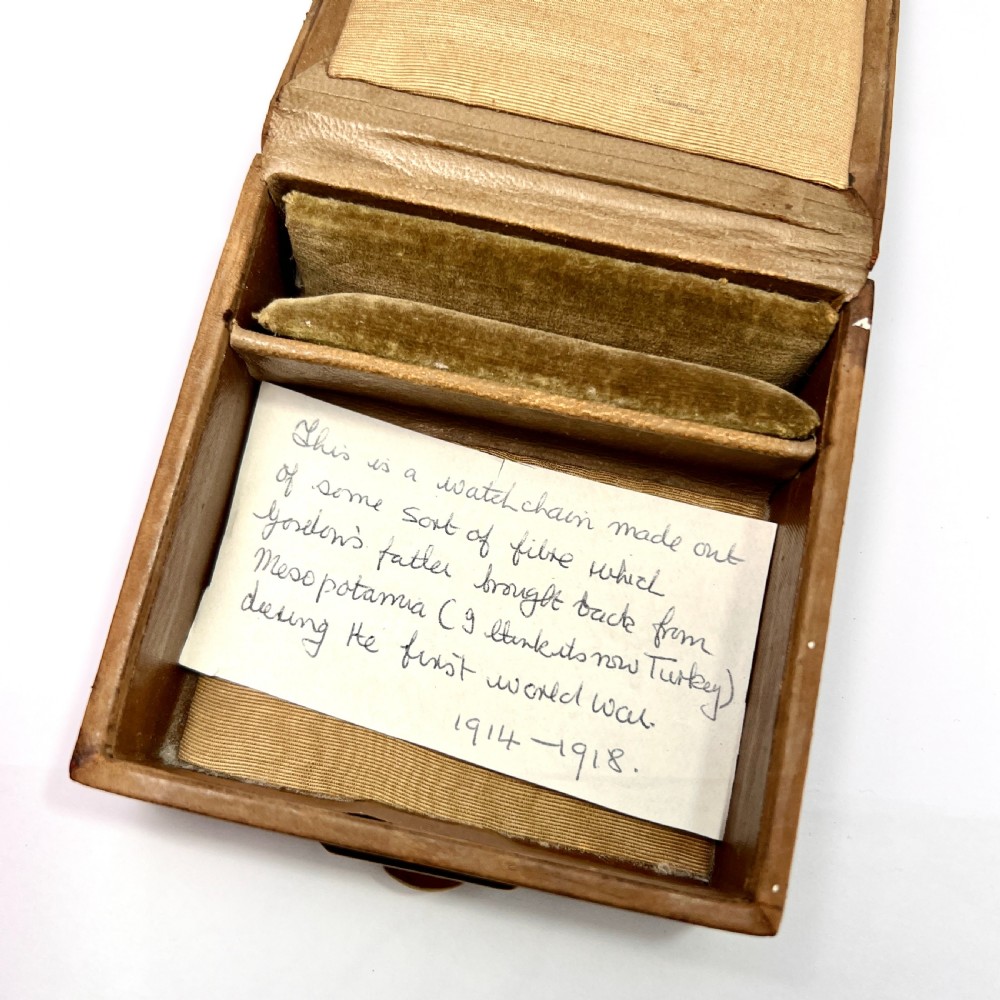 This is a watchchain made out
of some sort of fibre which
Gordon's father brought back from
Mesopotamia (I think its now Turkey)
during the first world war.
1914-1918.